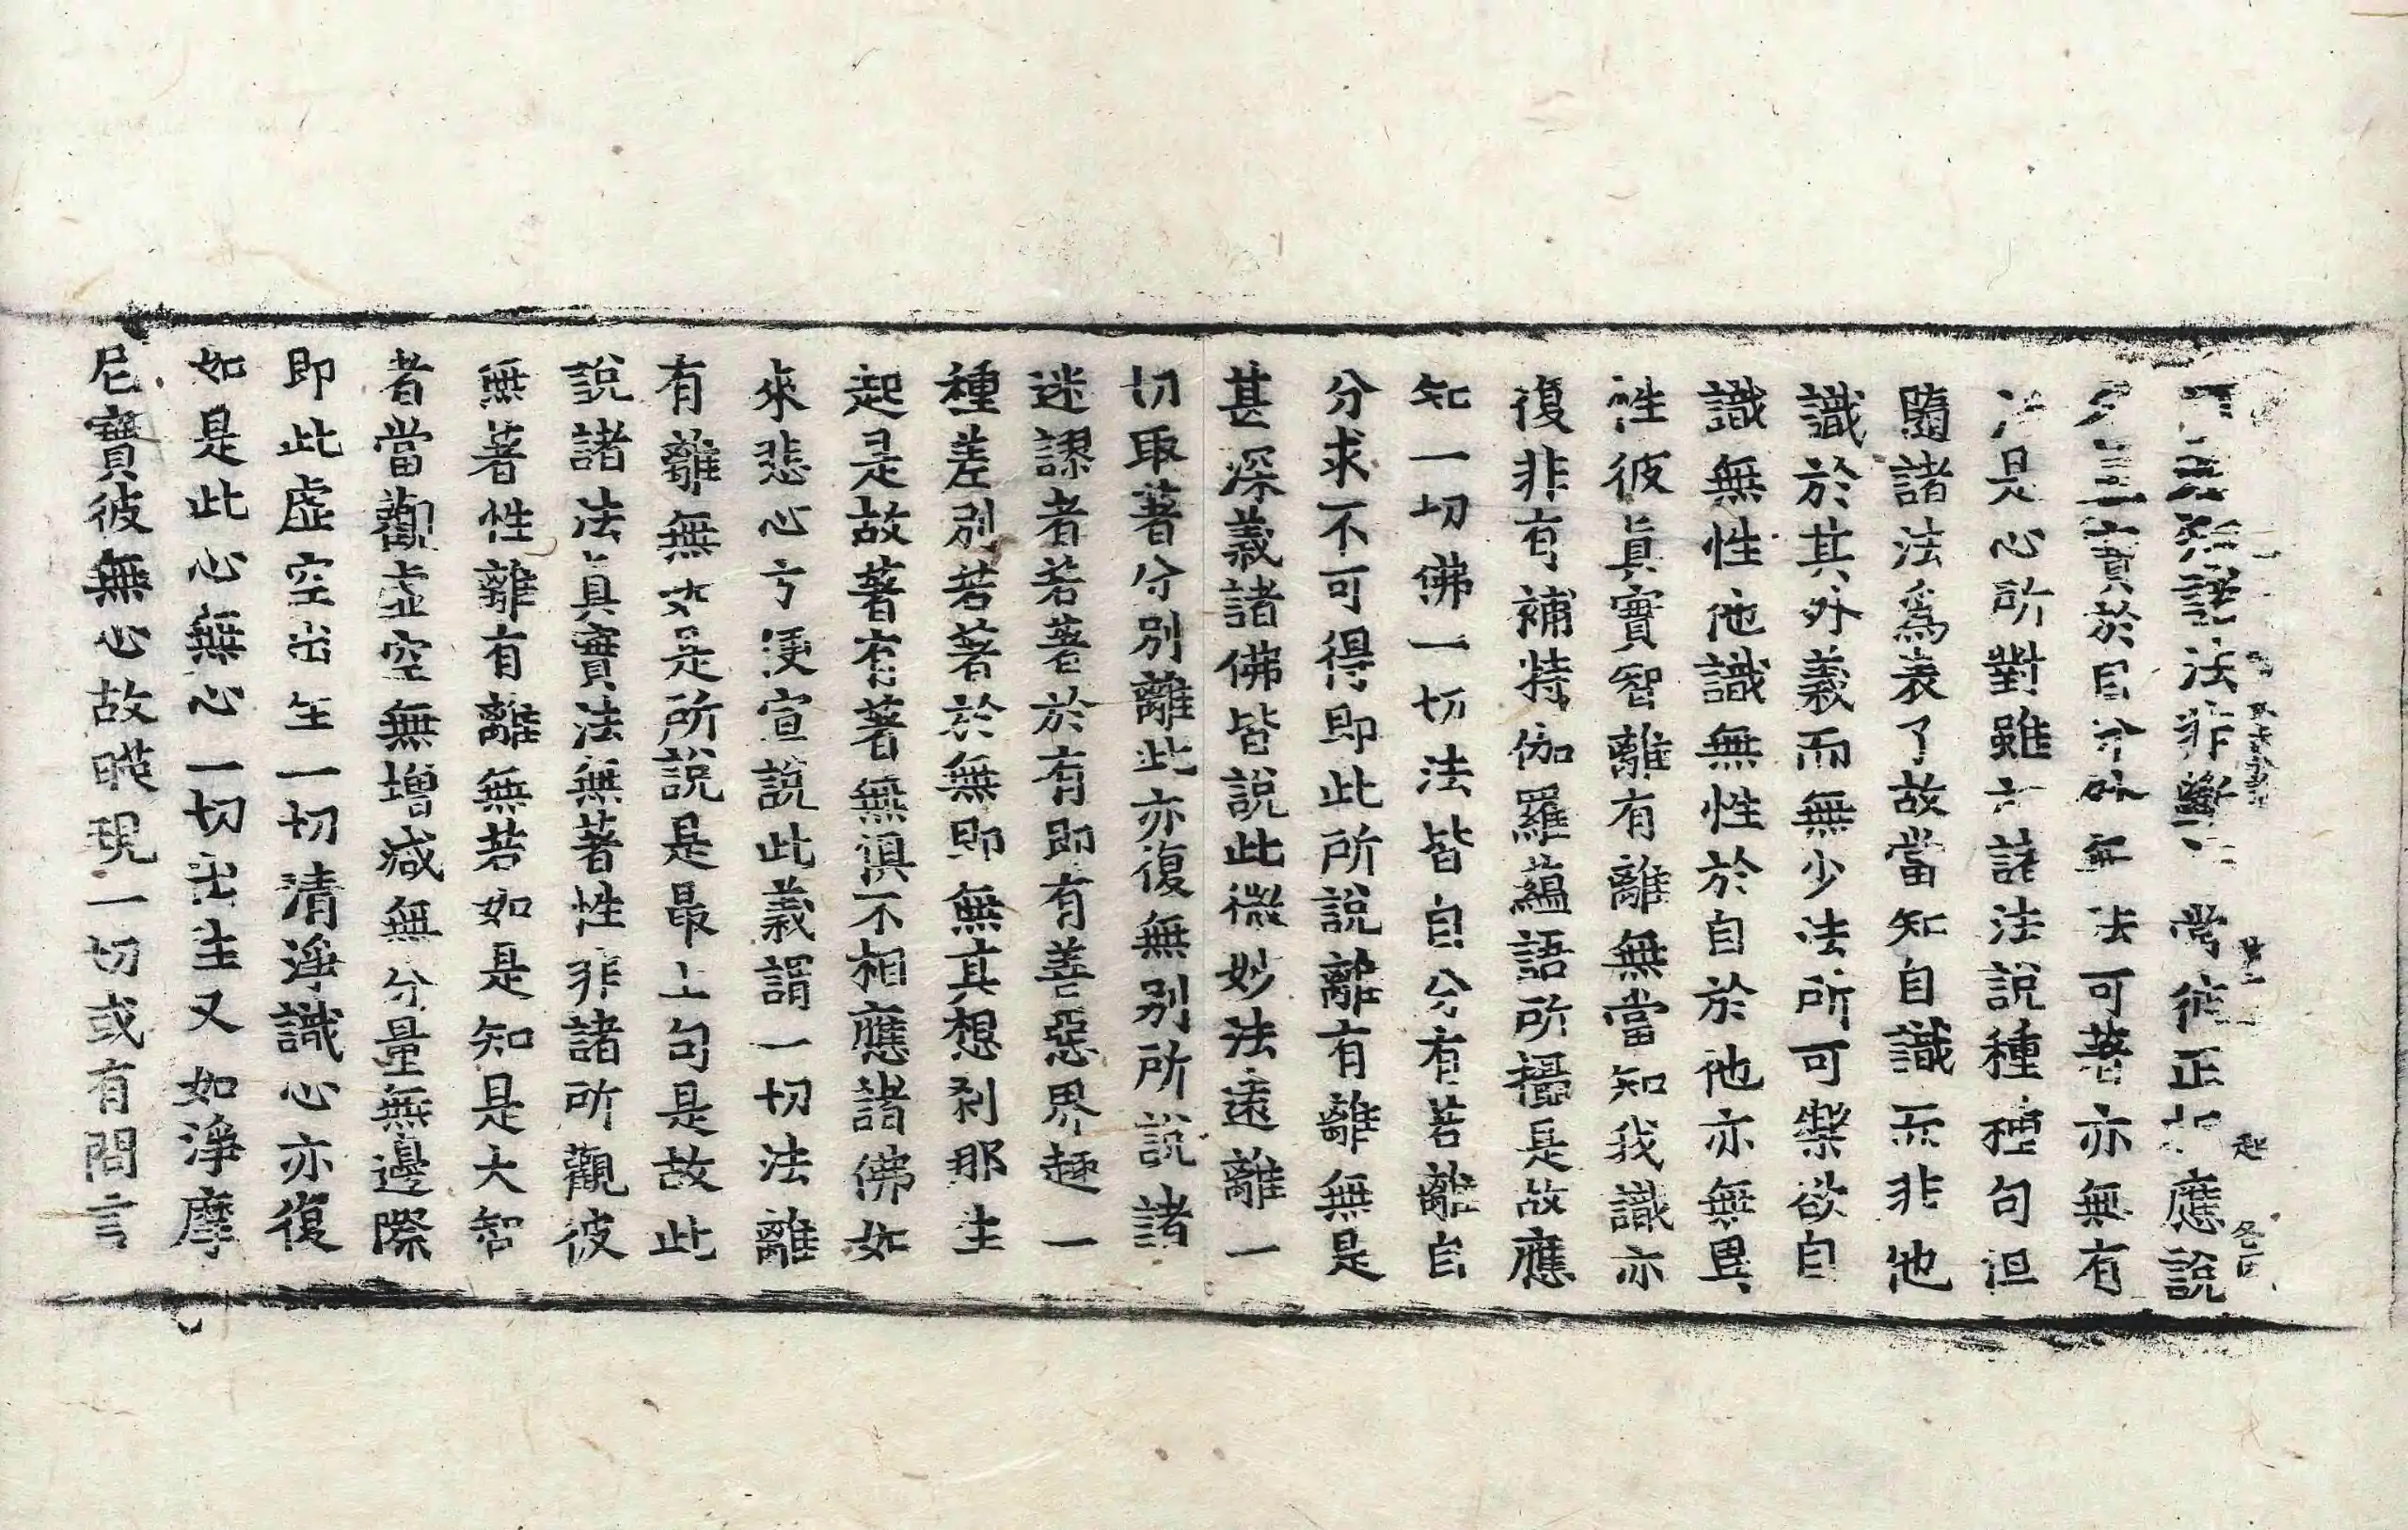 諸法非 常彼正 應說
於自分 無法可著亦無有
法是心所對雖 諸法說種種句但
隨諸法爲表了故當知自識而非他
識於其外義而無少法所可樂欲自
識無性他識無性於自於他亦無異
性彼眞實智離有離無當知我識亦
復非有補特伽羅蘊語所攝是故應
知一切佛一切法皆自分有若離自
分求不可得即此所說離有離無是
甚深義諸佛皆說此微妙法遠離一
切取著分別離此亦復無別所說諸
迷謬者若著於有即有善惡界趣一
種差別若著於無即無其想刹那生
起是故著有著無俱不相應諸佛如
來悲心方便宣說此義謂一切法離
有離無 是所說是最上句是故此
說諸法眞實法無著性非諸所觀彼
無著性離有離無若如是知是大智
者當觀虛空無增減無分量無邊際
即此虛空出生一切清淨識心亦復
如是此心無心一切出生又如淨摩
尼寶彼無心故暎現一切或有問言